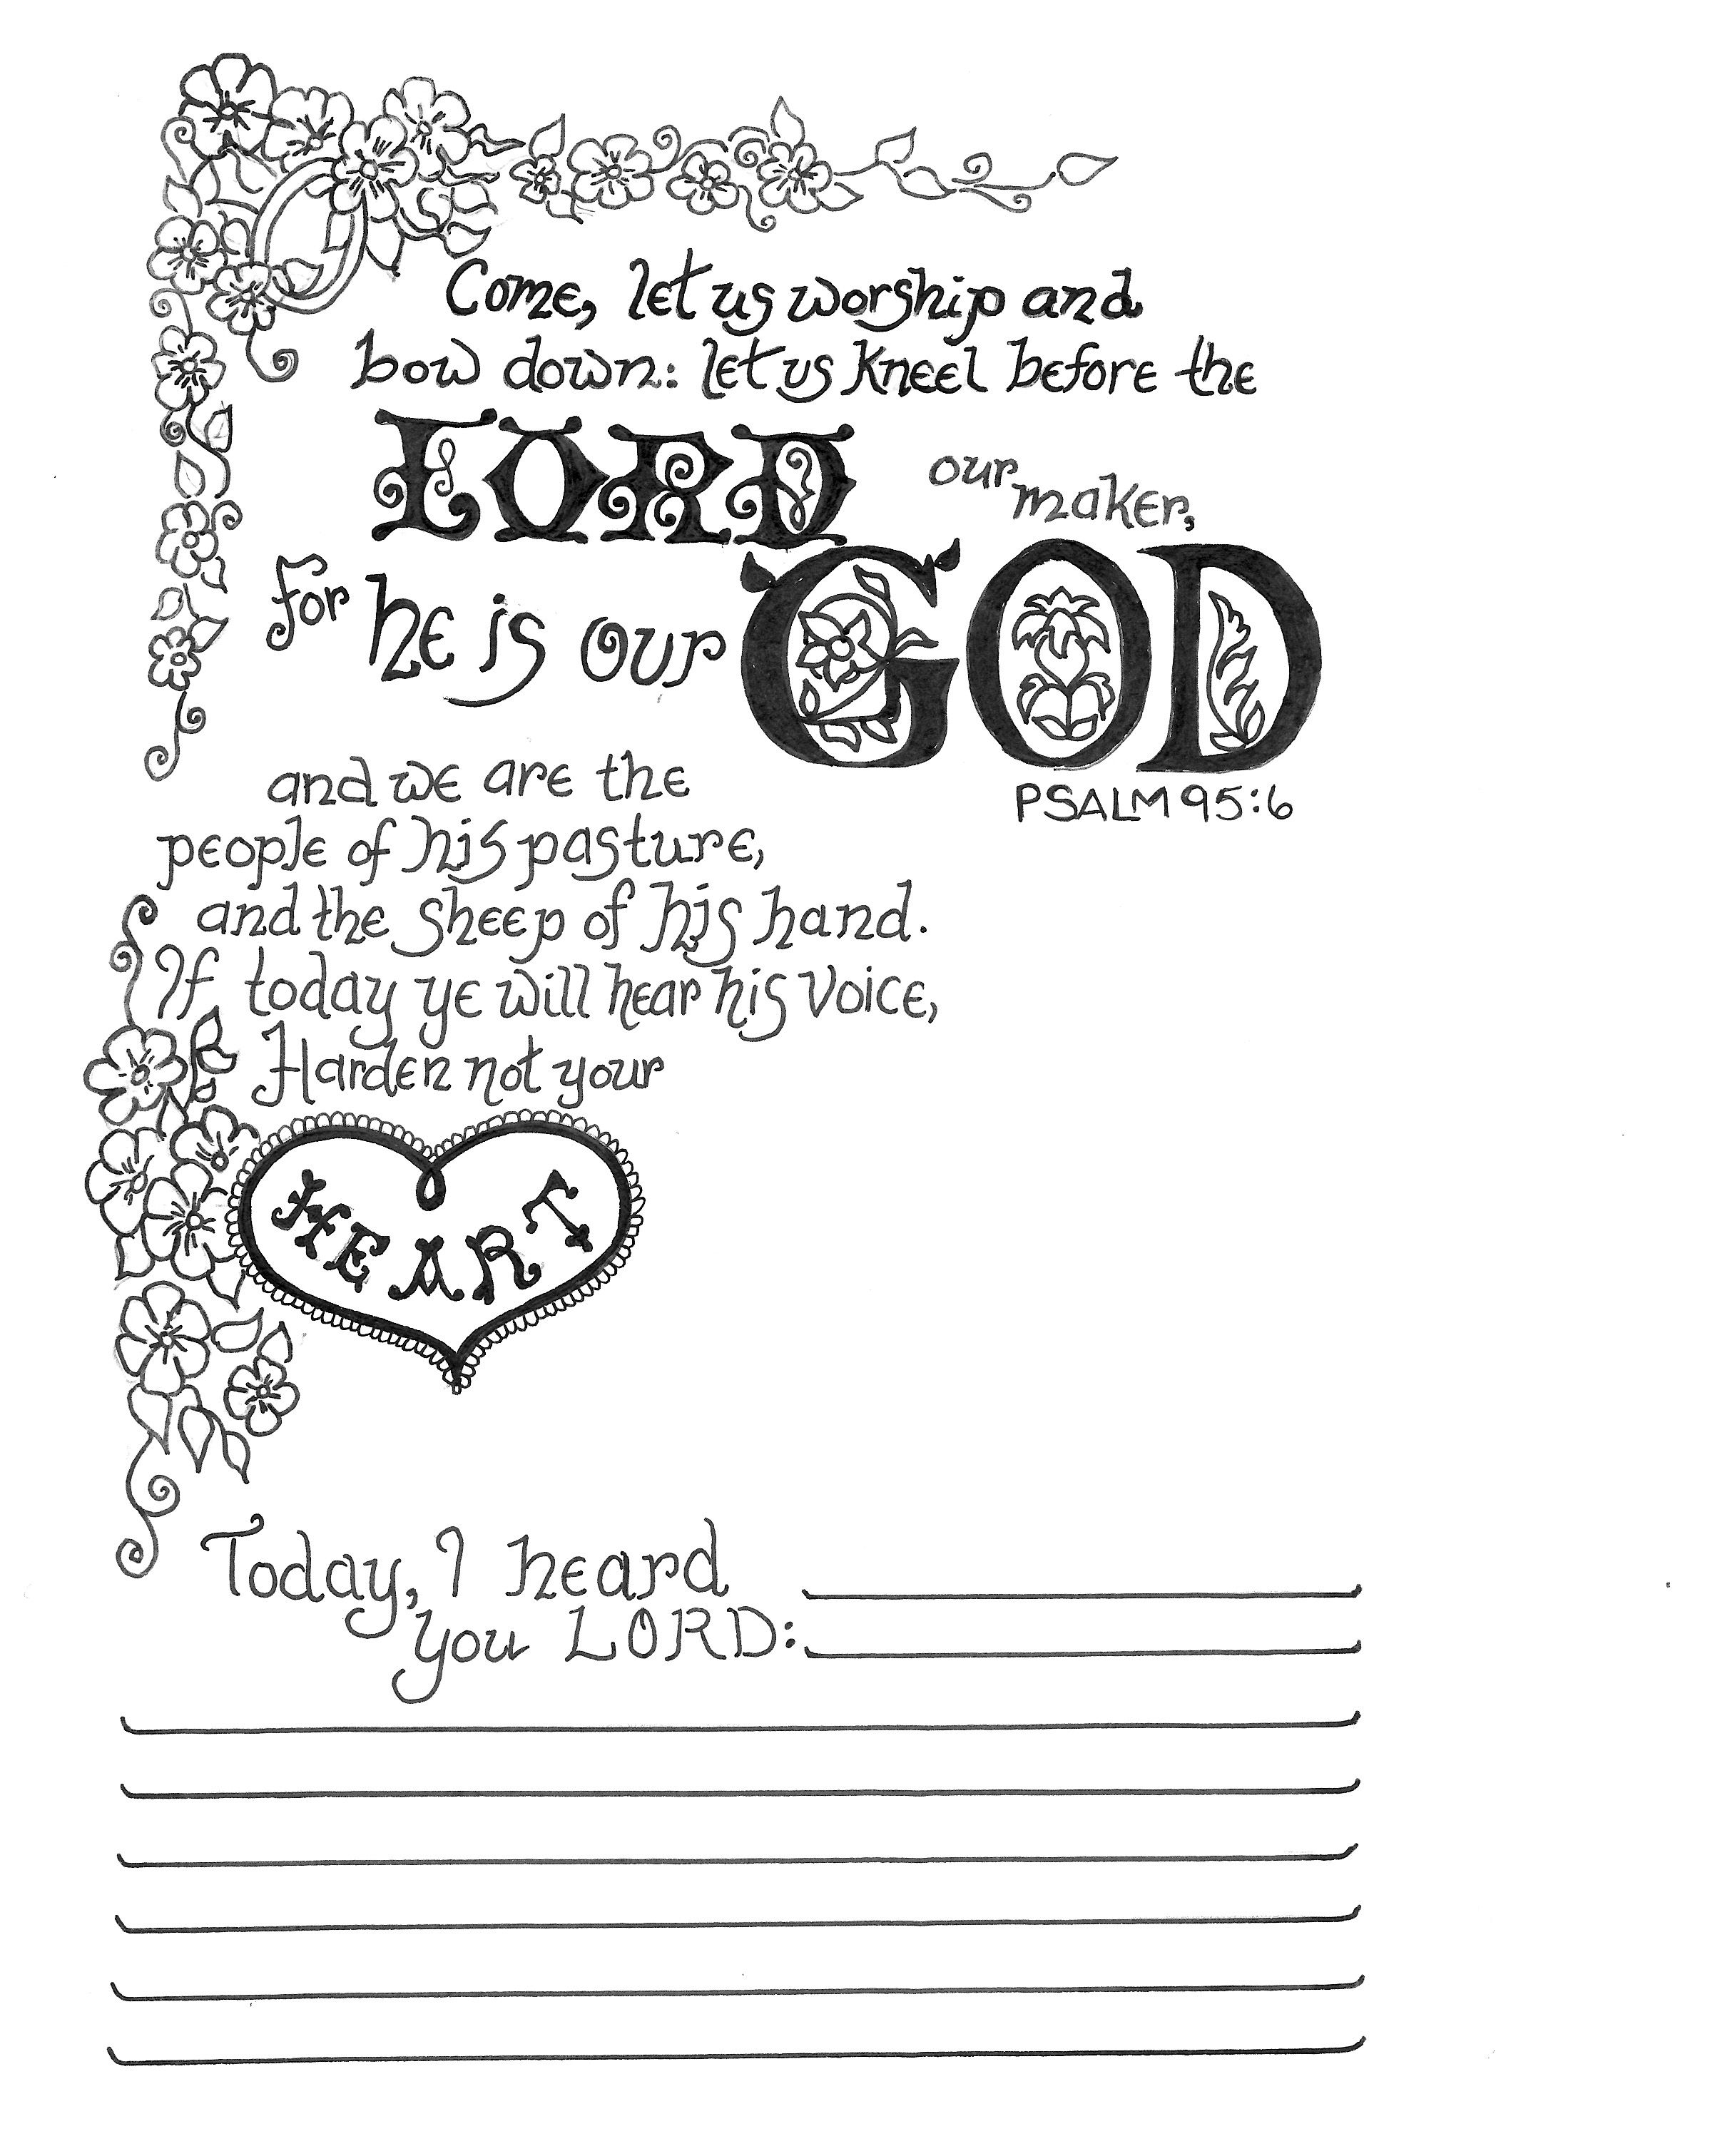 Come, let us worship and
bow down: let us kneel before the
LORD our maker,
for he is our GOD
PSALM 95:6
and we are the
people of his pasture,
and the sheep of his hand.
If today ye will hear his voice,
Harden not your
HEART
Today, I heard
you LORD: